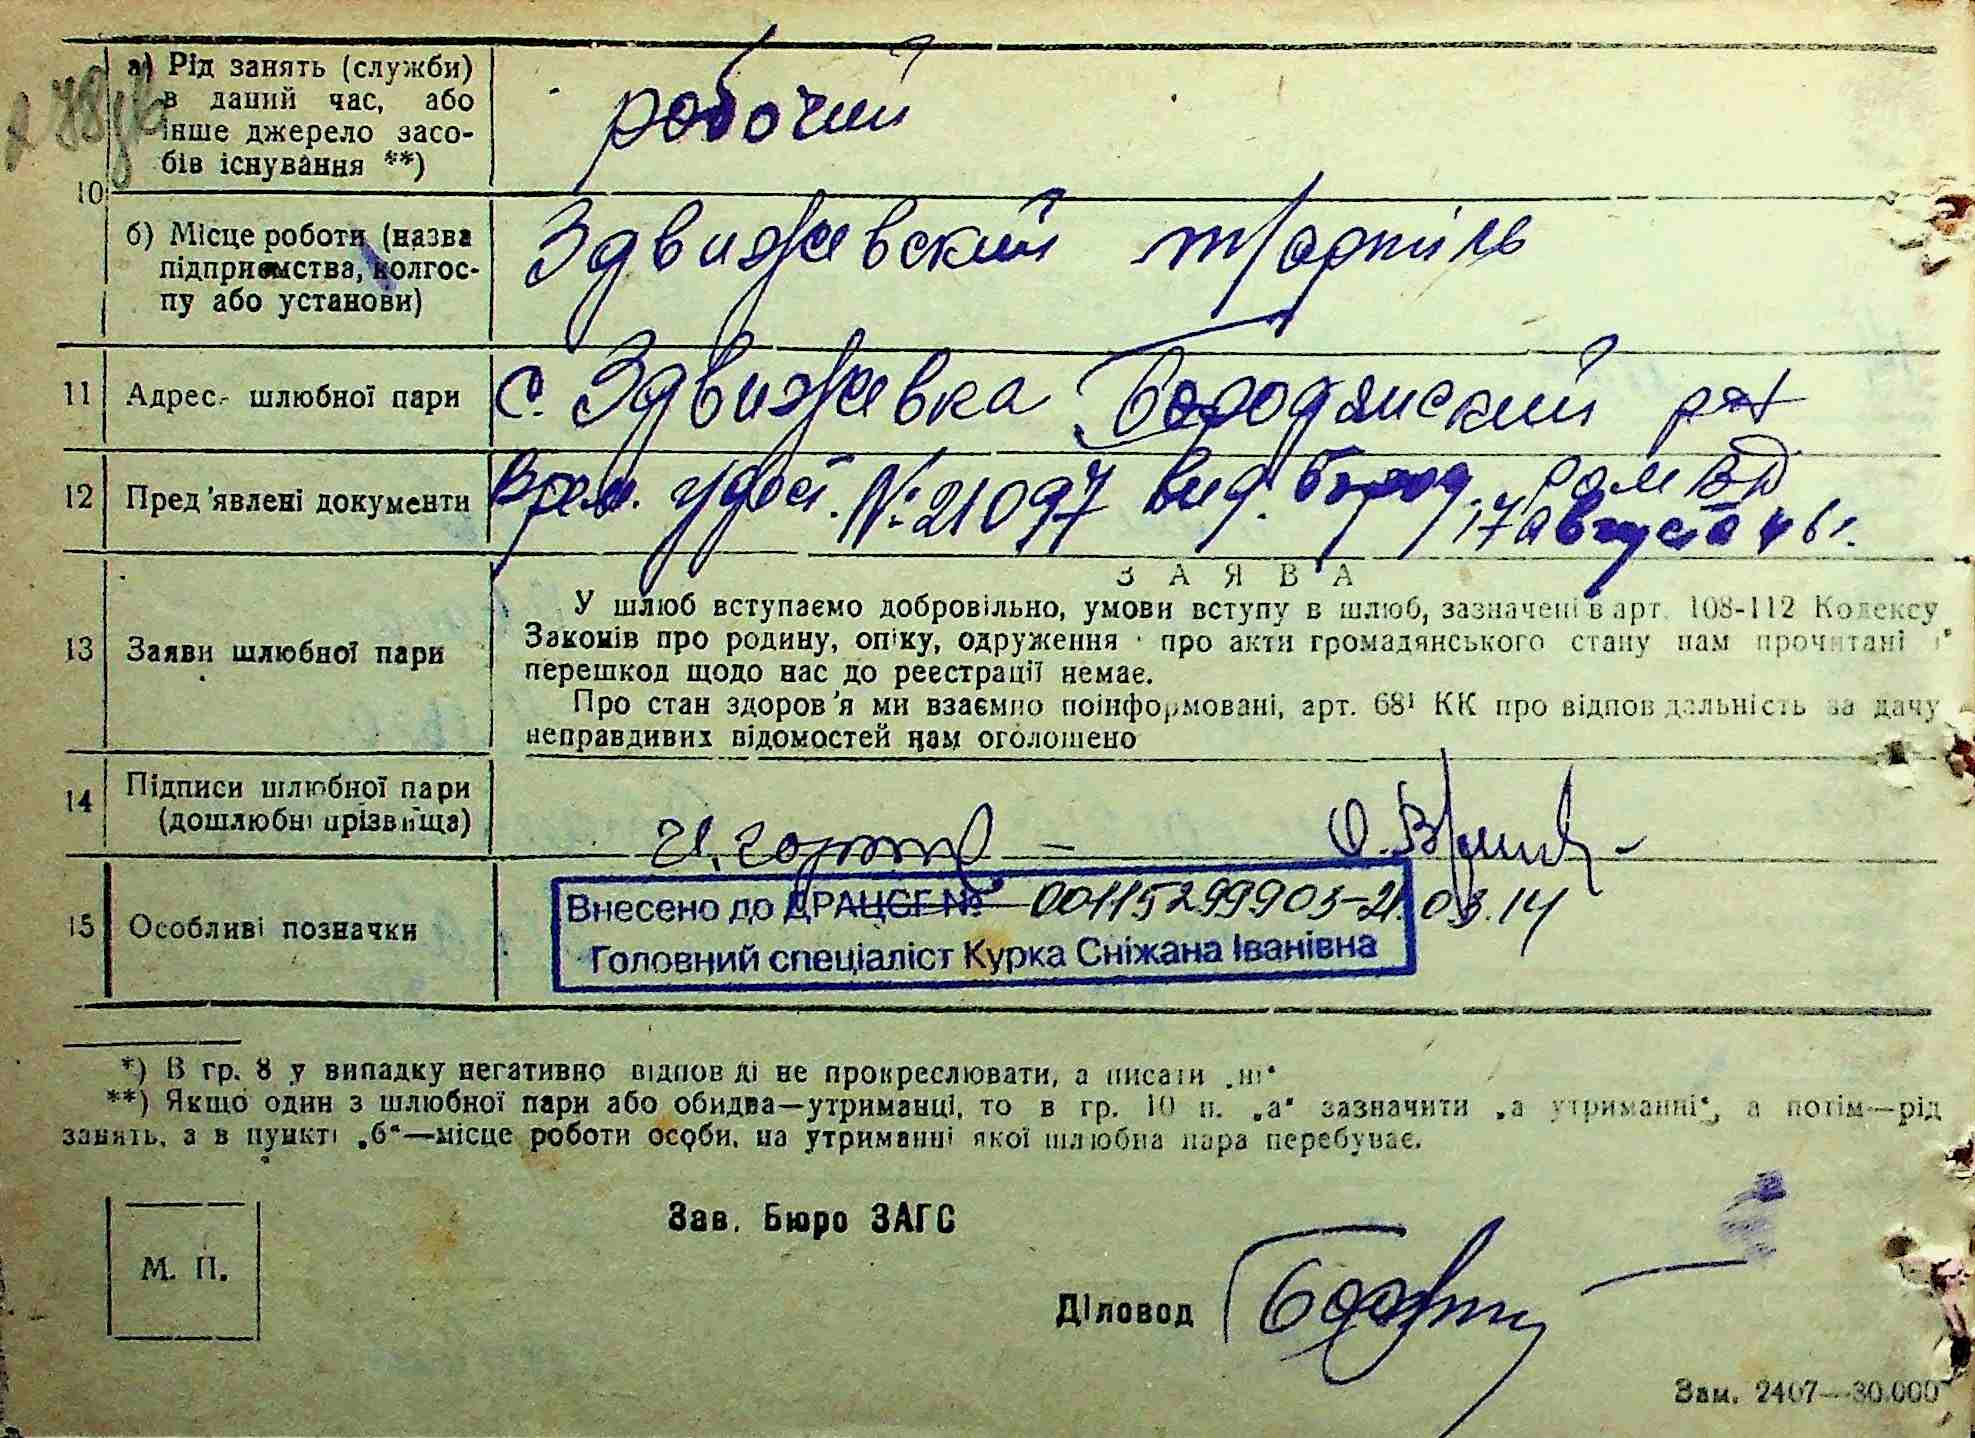 а) Рід занять (служби)
в даний час, або
інше джерело засо-
бів існування **)
робочий
10
б) Місце роботи (назва
підприємства, колгос-
пу або установи)
Здвижевский
11 Адрес шлюбної пари с. Здвижевка Бородянский р-н
12 Пред'явлені документи Врем. удост. № 21097 вид. Бород.
17 августа 46 г.
ЗАЯВА
13 Заяви шлюбної пари
У шлюб вступаємо добровільно, умови вступу в шлюб, зазначені в арт. 108-112 Кодексу
Законів про родину, опіку, одруження і про акти громадянського стану нам прочитані і
перешкод щодо нас до реєстрації немає.
Про стан здоров'я ми взаємно поінформовані, арт. 68¹ КК про відповідальність за дачу
неправдивих відомостей нам оголошено
14 Підписи шлюбної пари
(дошлюбні прізвища)
15 Особливі позначки
Внесено до ДРАЦСГ № 00115299903-21.03.14
Головний спеціаліст Курка Сніжана Іванівна
*) В гр. 8 у випадку негативно відповіді не прокреслювати, а писати „ні“
**) Якщо один з шлюбної пари або обидва—утриманці, то в гр. 10 п. „а“ зазначити „а утриманні“, а потім—рід
занять, а в пункті „б“—місце роботи особи, на утриманні якої шлюбна пара перебуває.
Зав. Бюро ЗАГС
М. П.
Діловод
Зам. 2407—30.000